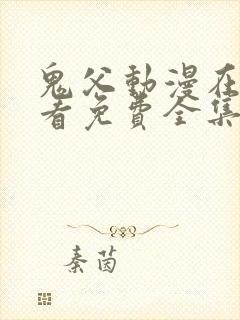 鬼父動漫在
看免費全集
秦茵